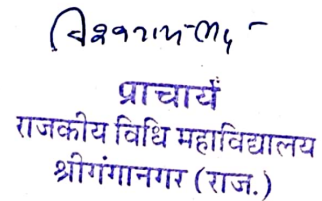 प्राचार्य
राजकीय विधि महाविद्यालय
श्रीगंगानगर (राज.)